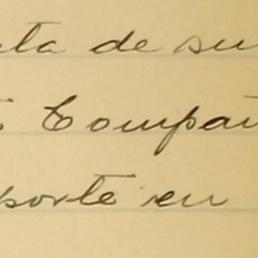 ta de su
Compañ
porte en